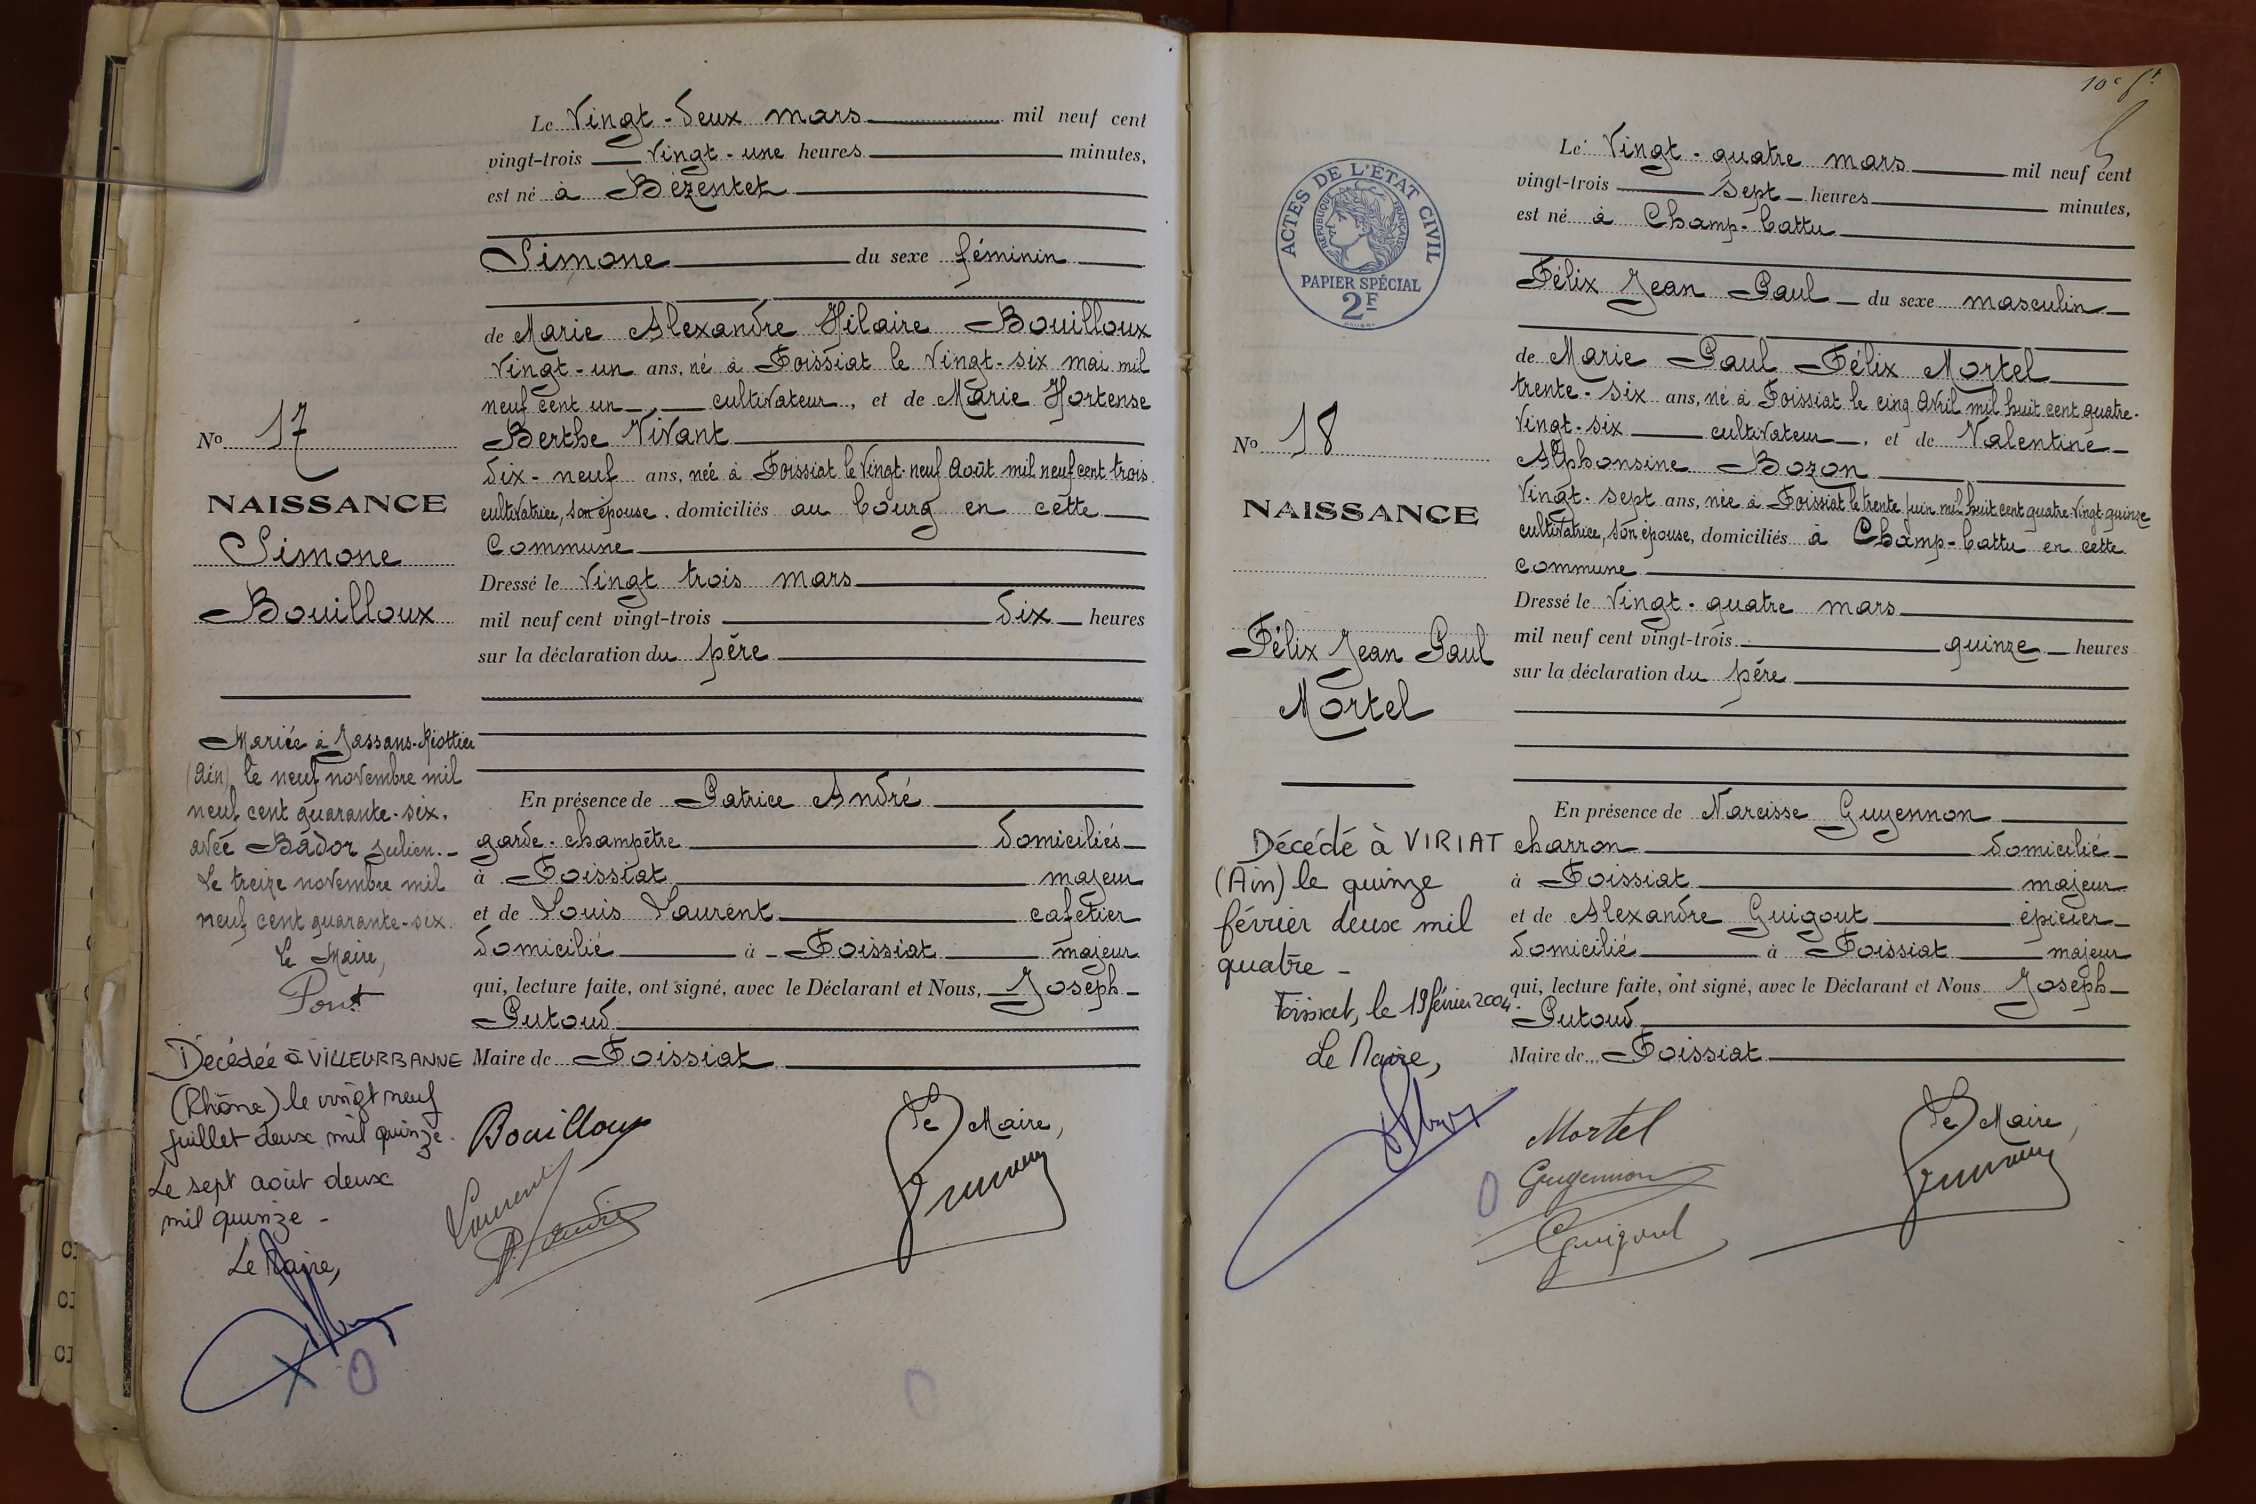 Le Vingt-deux mars mil neuf cent
vingt-trois vingt-une heures minutes,
est né à Bézentet
Simone du sexe féminin
de Marie Alexandre Hilaire Bouilloux
vingt-un ans, né à Foissiat le vingt-six mai mil
neuf cent un, cultivateur, et de Marie Hortense
Berthe Vivant
dix-neuf ans, née à Foissiat le vingt-neuf Août mil neuf cent trois
cultivatrice, son épouse, domiciliés au bourg en cette
commune
Dressé le vingt trois mars
mil neuf cent vingt-trois dix heures
sur la déclaration du père
En présence de Patrice André
garde-champêtre domiciliés
à Foissiat majeur
et de Louis Laurent cafetier
domicilié à Foissiat majeur
qui, lecture faite, ont signé, avec le Déclarant et Nous, Joseph
Putoud
Maire de Foissiat
Bouilloux
Laurent
P. André
Le Maire,
No 17
NAISSANCE
Simone
Bouilloux
Mariée à Jassans-Riottier
(Ain), le neuf novembre mil
neuf cent quarante-six.
avec Bador Julien.
Le treize novembre mil
neuf cent quarante-six.
Le Maire,
Pont
Décédée à VILLEURBANNE
(Rhône) le vingt neuf
juillet deux mil quinze.
Le sept août deux
mil quinze -
Le Maire,
10e ft
ACTES DE L'ÉTAT CIVIL
RÉPUBLIQUE FRANÇAISE
PAPIER SPÉCIAL
2F
Le Vingt-quatre mars mil neuf cent
vingt-trois sept heures minutes,
est né à Champ-battu
Félix Jean Paul du sexe masculin
de Marie Paul Félix Mortel
trente-six ans, né à Foissiat le cinq Avril mil huit cent quatre-
vingt-six cultivateur, et de Valentine
Alphonsine Bozon
vingt-sept ans, née à Foissiat le trente juin mil huit cent quatre-vingt-quinze
cultivatrice, son épouse, domiciliés à Champ-battu en cette
commune
Dressé le vingt-quatre mars
mil neuf cent vingt-trois quinze heures
sur la déclaration du père
En présence de Narcisse Guyennon
charron domicilié
à Foissiat majeur
et de Alexandre Guigout épicier
domicilié à Foissiat majeur
qui, lecture faite, ont signé, avec le Déclarant et Nous Joseph
Putoud
Maire de Foissiat
Mortel
Guyennon
Guigout
Le Maire,
No 18
NAISSANCE
Félix Jean Paul
Mortel
Décédé à VIRIAT
(Ain) le quinze
février deux mil
quatre -
Foissiat, le 19 février 2004.
Le Maire,